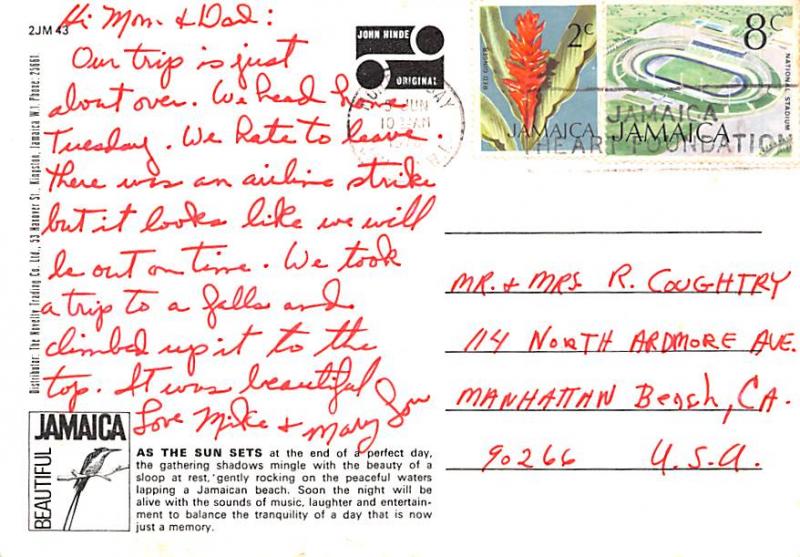 2JM 43
Hi Mom & Dad:
Our trip is just
about over. We head home
Tuesday. We hate to leave.
There was an airline strike
but it looks like we will
be out on time. We took
a trip to a falls and
climbed up it to the
top. It was beautiful
Love Mike & Mary Lou
Distributor: The Novelty Trading Co. Ltd., 53 Hanover St., Kingston, Jamaica W.I. Phone: 25661.
BEAUTIFUL
JAMAICA
AS THE SUN SETS at the end of a perfect day,
the gathering shadows mingle with the beauty of a
sloop at rest, gently rocking on the peaceful waters
lapping a Jamaican beach. Soon the night will be
alive with the sounds of music, laughter and entertain-
ment to balance the tranquility of a day that is now
just a memory.
JOHN HINDE
ORIGINAL
JUN
10 AM
RED GINGER
2c
JAMAICA
8c
NATIONAL STADIUM
JAMAICA
JAMAICA
HEART FOUNDATION
MR. & MRS R. COUGHTRY
114 NORTH ARDMORE AVE.
MANHATTAN Beach, CA.
90266 U.S.A.